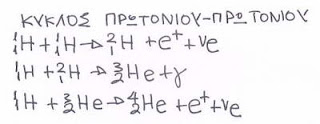 ΚΥΚΛΟΣ ΠΡΩΤΟΝΙΟΥ-ΠΡΩΤΟΝΙΟΥ
¹₁H + ¹₁H → ²₁H + e⁺ + νe
¹₁H + ²₁H → ³₂He + γ
¹₁H + ³₂He → ⁴₂He + e⁺ + νe